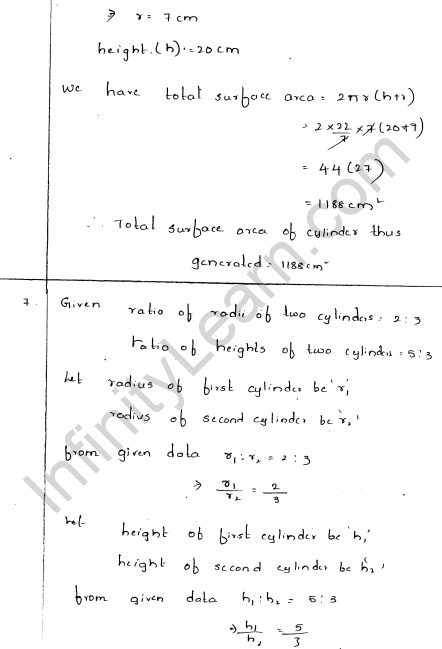 ⇒ r = 7 cm
height.(h) = 20 cm
We have total surface area = 2πr(h+r)
= 2 × 22/7 × 7 (20+9)
= 44 (27)
= 1188 cm²
∴ Total surface area of cylinder thus
generated = 1188 cm²
7. Given ratio of radii of two cylinders = 2:3
ratio of heights of two cylinders = 5:3
let radius of first cylinder be 'r₁'
radius of second cylinder be 'r₂'
from given data r₁:r₂ = 2:3
⇒ r₁/r₂ = 2/3
let height of first cylinder be 'h₁'
height of second cylinder be 'h₂'
from given data h₁:h₂ = 5:3
⇒ h₁/h₂ = 5/3
InfinityLearn.com